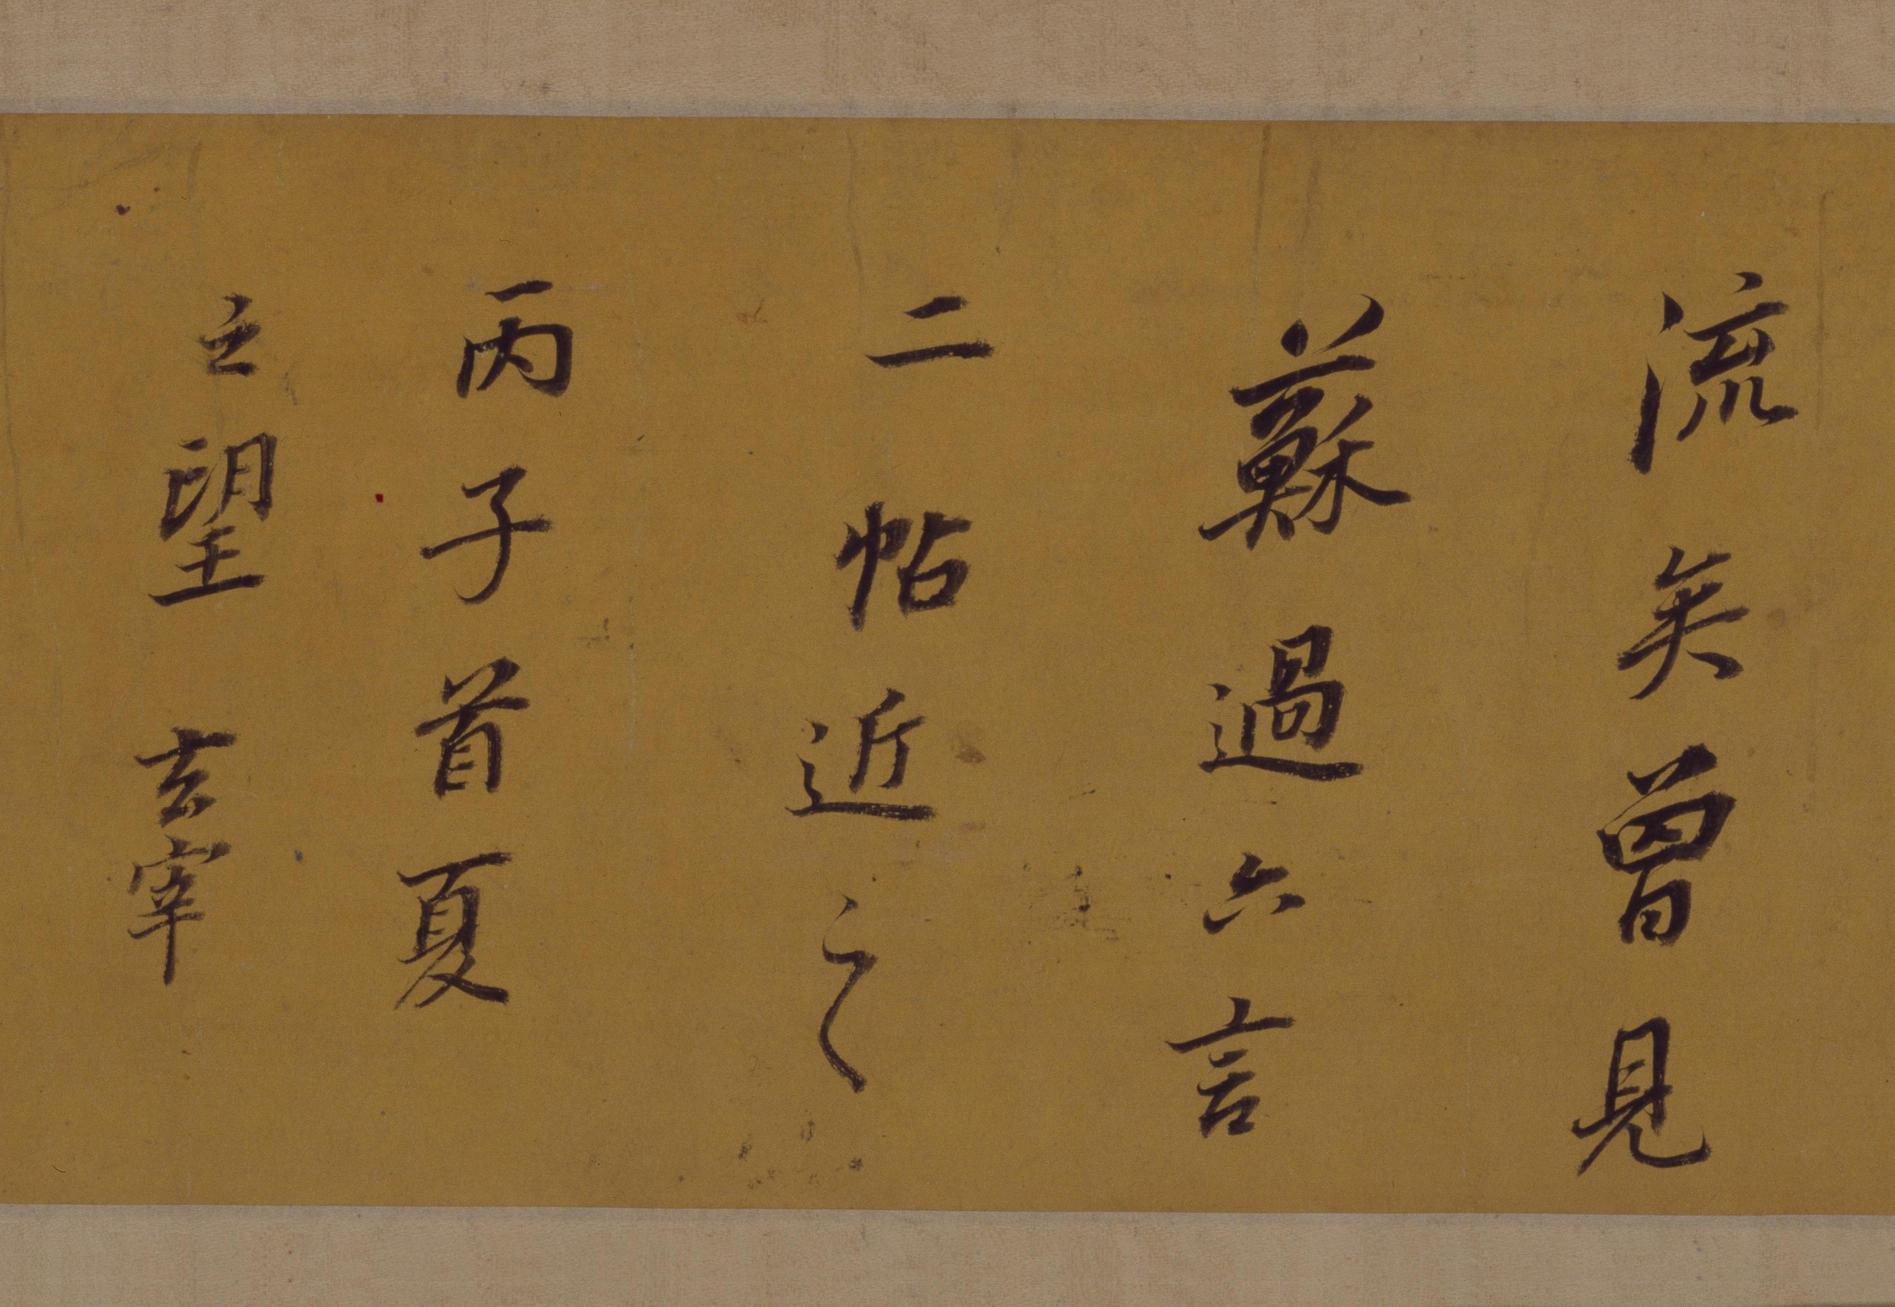 流矣曾見
蘇過六言
二帖近之
丙子首夏
之望 玄宰